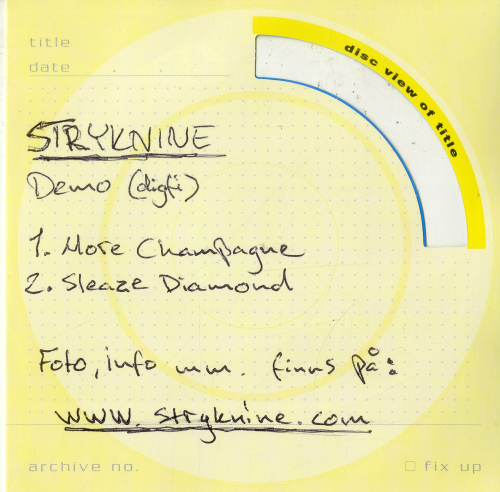 title
date
disc view of title
STRYKNINE
Demo (digfi)
1. More Champagne
2. Sleaze Diamond
Foto, info mm. finns på:
www.stryknine.com
archive no.
fix up